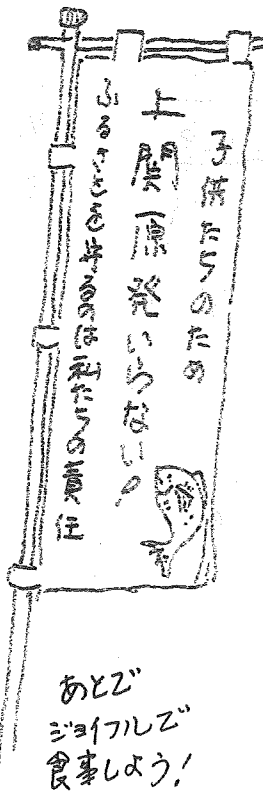 子供たちのため
上関原発いらない!
ふるさとを守るのは私たちの責任
あとで
ジョイフルで
食事しよう!